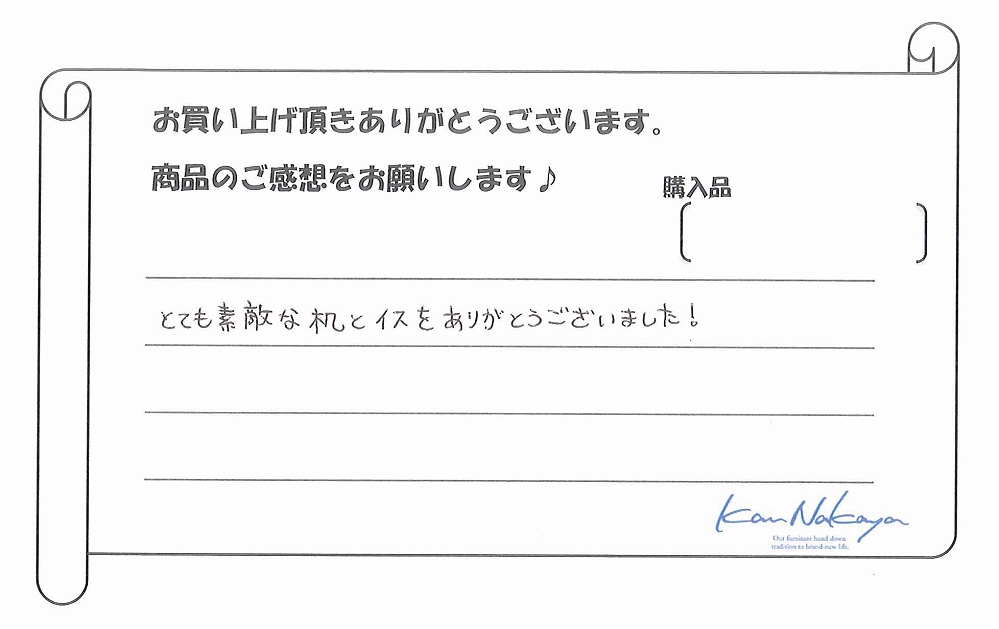 お買い上げ頂きありがとうございます。
商品のご感想をお願いします♪
購入品
とても素敵な机とイスをありがとうございました！
Kan Nakaya
Our furniture hand down
tradition to brand-new life.